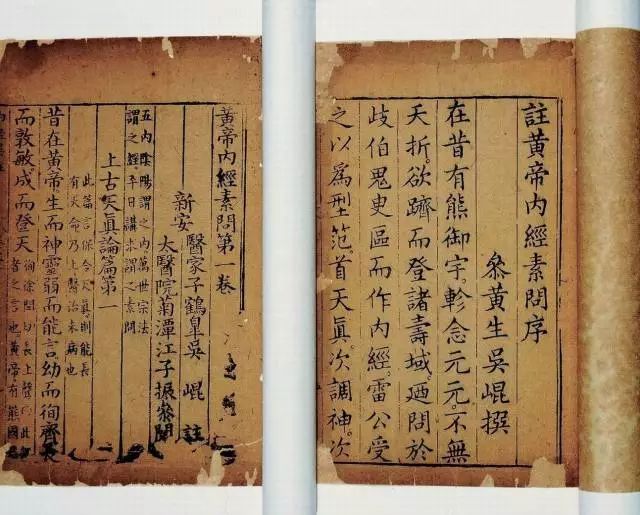 註黃帝內經素問序
叅黃生吳崐撰
在昔有熊御宇軫念元元不無
夭折欲躋而登諸壽域廼問於
歧伯鬼臾區而作內經雷公受
之以為型范首天眞次調神次
黃帝內經素問第 卷
新安
醫家子鶴皐吳崐註
太醫院菊潭江子振叅閱
五內陰陽謂之內萬世宗法
謂之經平日講求謂之素問
上古天眞論篇第一
此篇言保合天眞則能長
有天命乃上醫治未病也
昔在黃帝生而神靈弱而能言幼而徇齊長
而敦敏成而登天
者之言也黃帝有熊國